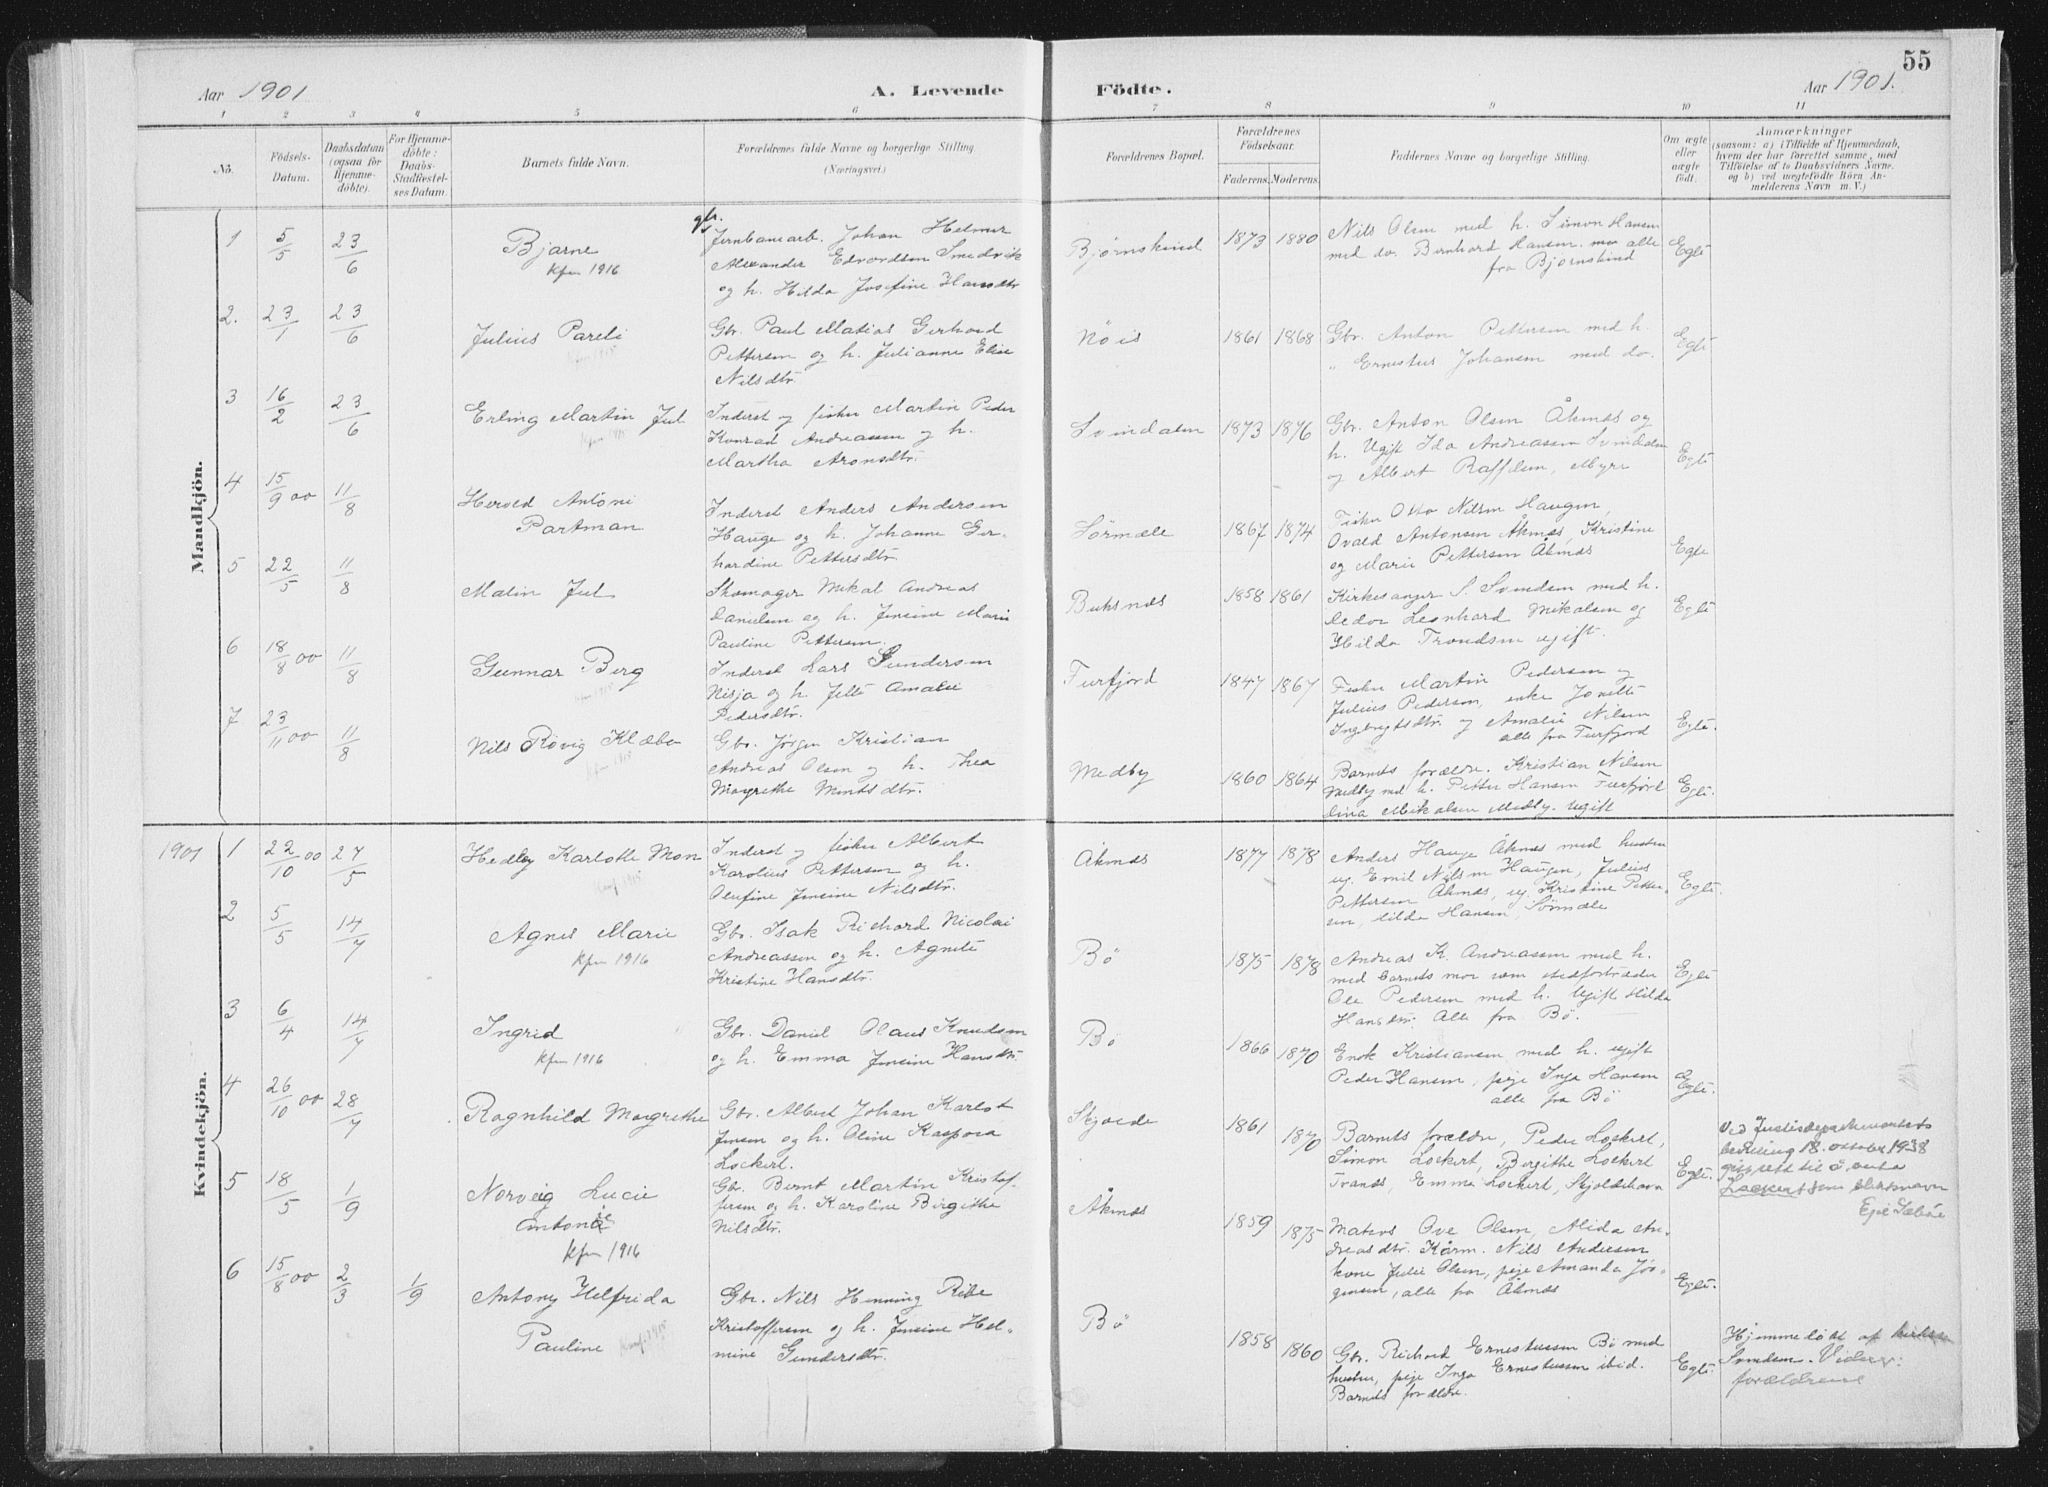 55
Aar 1901
A. Levende
Födte.
Aar 1901.
1 2 3 4 5 6 7 8 9 10 11
No.
Födsels-
Datum.
Daabsdatum
(ogsaa for
Hjemme-
döbte).
For Hjemme-
döbte:
Daabs-
Stadfæstel-
ses Datum.
Barnets fulde Navn.
Forældrenes fulde Navne og borgerlige Stilling.
(Næringsvei.)
Forældrenes Bopæl.
Forældrenes
Födselsaar.
Faderens. Moderens.
Faddernes Navne og borgerlige Stilling.
Om ægte
eller
uægte
födt.
Anmærkninger
(saasom: a) i Tilfælde af Hjemmedaab,
hvem der har forrettet samme, med
Tilföielse af to Daabsvidners Navne.
og b) ved uægtefödte Börn An-
melderens Navn m. V.)
Mandkjön.
1 5/5 23/6
Bjarne
kfm 1916
gbr.
Jernbanearb. Johan Helmer
Alexander Edvardsen Smedvik
og h. Hilda Josefine Hansdtr
Bjørnskind 1873 1880
Nils Olsen med h. Simon Hansen
med do. Bernhard Hansen alle
fra Bjørnskind
Egte
2. 23/1 23/6
Julius Pareli
Gbr. Paul Matias Gerhard
Pettersen og h. Julianne Elise
Nilsdtr.
Nøis 1861 1868
Gbr. Anton Pettersen med h.
" Ernestus Johansen med do.
Egte
3 16/2 23/6
Erling Martin Jul
Inderst og fisker Martin Peder
Konrad Andreassen og h.
Martha Aronsdtr.
Svindalen 1873 1876
Gbr. Anton Olsen Åknes og
h. Ugift Ida Andreassen Svindalen
og Albert Raffelsen, Myre
Egte
4 15/9 00 11/8
Herold Antóni
Partman
Inderst Anders Andersen
Hauge og h. Johanne Ger-
hardine Pettersdtr.
Sörmæle 1867 1874
Fisker Otto Nilsen Haugen,
Ovald Antonsen Åknes, Kristine
og Marie Pettersen Åknes
Egte
5 22/5 11/8
Malin Jul
Skomager Mikal Andreas
Danielsen og h. Jensine Marie
Pauline Pettersen.
Buksnes 1858 1861
Kirkesanger S. Svendsen med h.
Leonhard Mikalsen og
Hilda Trondsen ugift.
Egte
6 18/8 00 11/8
Gunnar Berg
Inderst Lars Gundersen
Nisja og h. Jette Amalie
Pedersdtr.
Furfjord 1847 1867
Fisker Martin Pedersen og
Julius Pedersen, enke Jonette
Ingebrigtsdtr. og Amalie Nilsen
alle fra Furfjord
Egte.
7 23/11 00 11/8
Nils Rövig Klæbo
Gbr. Jørgen Kristian
Andreas Olsen og h. Thea
Margrethe Mentsdtr.
Medby 1860 1864
Barnets forældre. Kristian Nilsen
Medby med h. Petter Hansen Furfjord
Lina Mikalsen Medby. Ugift
Egte.
Kvindekjön.
1901
1 22/10 00 27/5
Hedley Karlotte Mon
Inderst og fisker Albert
Karolius Pettersen og h.
Olufine Jensine Nilsdtr.
Åknes 1877 1878
Anders Hauge Åknes med hustru
ug. Emil Nilsen Haugen, Julius
Pettersen Åknes, ug. Kristine Petter-
sen, Hansen, Sørmæle
Egte.
2 5/5 14/7
Agnes Marie
kfm 1916
Gbr. Isak Richard Nicolai
Andreassen og h. Agnete
Kristine Hansdtr.
Bö 1875 1878
Andreas K. Andreassen med h.
med barnets mor som stedfortræder
Ole Pedersen med h. Ugift Hilda
Hansdtr. Alle fra Bö.
Egte
3 6/4 14/7
Ingrid
kfm 1916
Gbr. Daniel Olaus Knudsen
og h. Emma Jensine Hansdtr.
Bö 1866 1870
Enok Kristiansen med h. ugift
Peder Hansen, pige Inga Hansen
alle fra Bö
Egte.
4 26/10 00 28/7
Ragnhild Margrethe
Gbr. Albert Johan Karlot
Jensen og h. Oline Kaspara
Lockert.
Skjolde 1861 1870
Barnets forældre, Peder Lockert,
Simon Lockert, Birgithe Lockert
Trands, Emma Lockert, Skjoldehavn
Egte.
Ved Justisdepartementets
bevilling 18. oktober 1938
gitt rett til å anta
Lockert som slektsnavn
5 18/5 1/9
Norveig Lucie
Antonie
kfm 1916
Gbr. Bernt Martin Kristof-
fersen og h. Karoline Birgithe
Nilsdtr.
Åknes 1859 1875
Matias Ove Olsen, Alida An-
dreasdtr. Kårm. Nils Andersen
kone Julie Olsen, pige Amanda Jör-
gensen, alle fra Åknes
Egte.
6 15/8 00 2/3 1/9
Antony Helfrida
Pauline Konf. 1915
Gbr. Nils Henning Ribe
Kristoffersen og h. Jensine Hel-
mine Gundersdtr.
Bö 1858 1860
Gbr. Richard Ernestussen Bö med
hustru, pige Inga Ernestussen ibid.
Barnets forældre.
Egte.
Hjemmedöbt af
Svendsen. Vidner:
forældrene